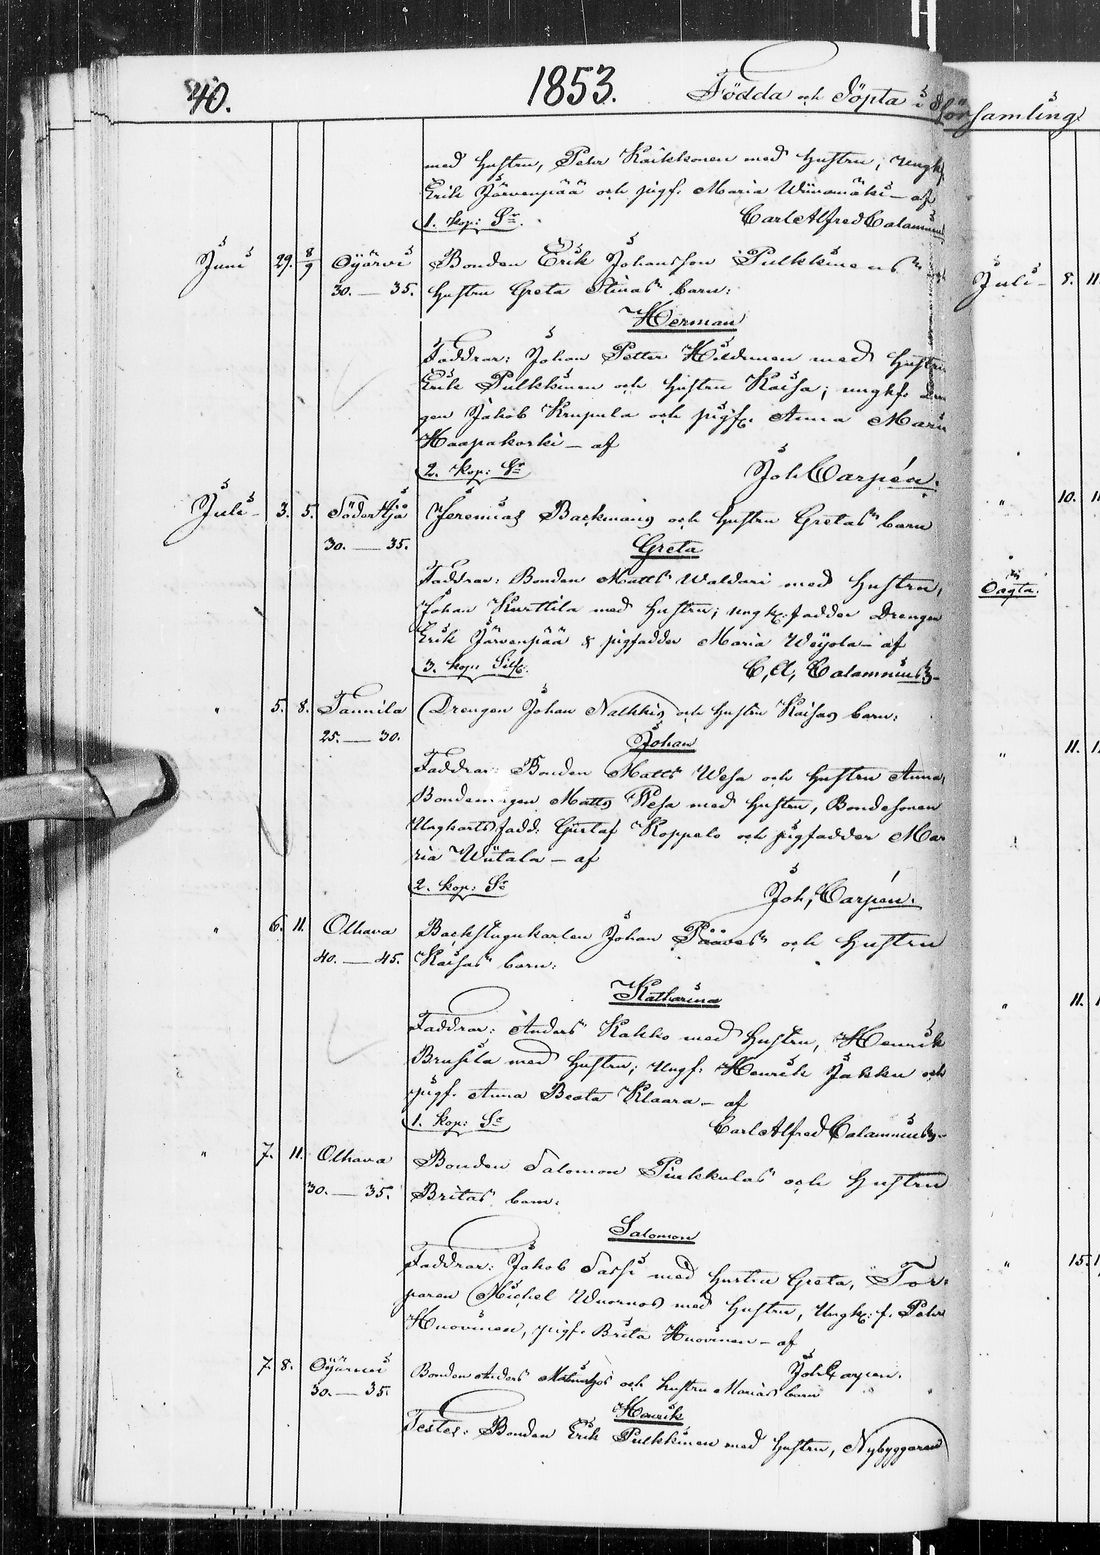 40. 1853. Födda och Döpta i Församling
med hustru, Pehr Kaikkonen med hustru, ungk.
Erik Järvenpää och pigf. Maria Wiinamäki – af
1. kop: Sr. Carl Alfred Calamnius
Juni 29. 8/9 Oijärvi Bonden Erik Johansson Pulkkinens och
30. — 35. hustru Greta Stinas barn:
Herman
Faddrar: Johan Petter Hildenen med hustru
Erik Pulkkinen och hustru Kaisa; ungkf. Dren
gen Jakob Krupula och pigf. Anna Maria
Haapakoski – af
2. kop: Sr Joh Carpén.
Juli 3. 5. Söder Ijå Jeremias Backmans och hustru Gretas barn
30. — 35. Greta
Faddrar: Bonden Matts Waldari med hustru,
Johan Kurttila med hustru; ungk. fadder Drengen
Erik Järvenpää & pigfadder Maria Weijola – af
3. kop: Silf. C. A. Calamnius
" 5. 8. Tannila Drengen Johan Nalkkis och hustru Kaisas barn:
25. — 30. Johan
Faddrar: Bonden Matts Wesa och hustru Anna,
Bondemågen Matts Wesa med hustru, Bondesonen
Ungkarls fadd. Gustaf Koppelo och pigfadder Ma
ria Wiitala – af
2. kop: Sr Joh. Carpén.
" 6. 11. Olhava Backstugukarlen Johan Pääves och hustru
40. — 45. Kaisas barn:
Katharina
Faddrar: Anders Kakko med hustru, Henrik
Brusila med hustru; ungf. Henrik Jakku och
pigf. Anna Beata Klaara – af
1. kop: Sr Carl Alfred Calamnius
" 7. 11. Olhava Bonden Salomon Pinkkulas och hustru
30. — 35. Britas barn:
Salomon
Faddrar: Jakob Sassi med hustru Greta, Tor-
paren Michel Wuornos med hustru, Ungk. f. Pehr
Huovinen, pigf. Brita Huovinen – af
Joh Carpen.
7. 8. Oijärvi Bonden Anders och hustru Marias barn
30. — 35. Henrik
Testes: Bonden Erik Pulkkinen med hustru, Nybyggaren
Juli 5. 11
" 10. 11
Oagta.
" 11. 1
" 11. 1
" 15. 1